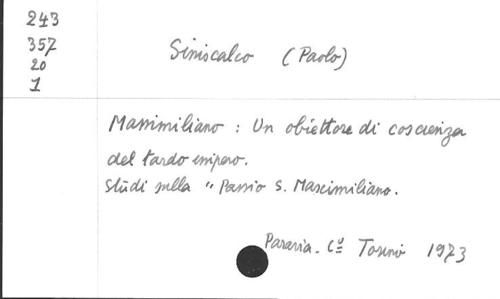 243
357
20
1
Siniscalco (Paolo)
Massimiliano : Un obiettore di coscienza
del tardo impero.
Studi sulla " Passio S. Maximiliano.
Paravia. Cº Torino 1973